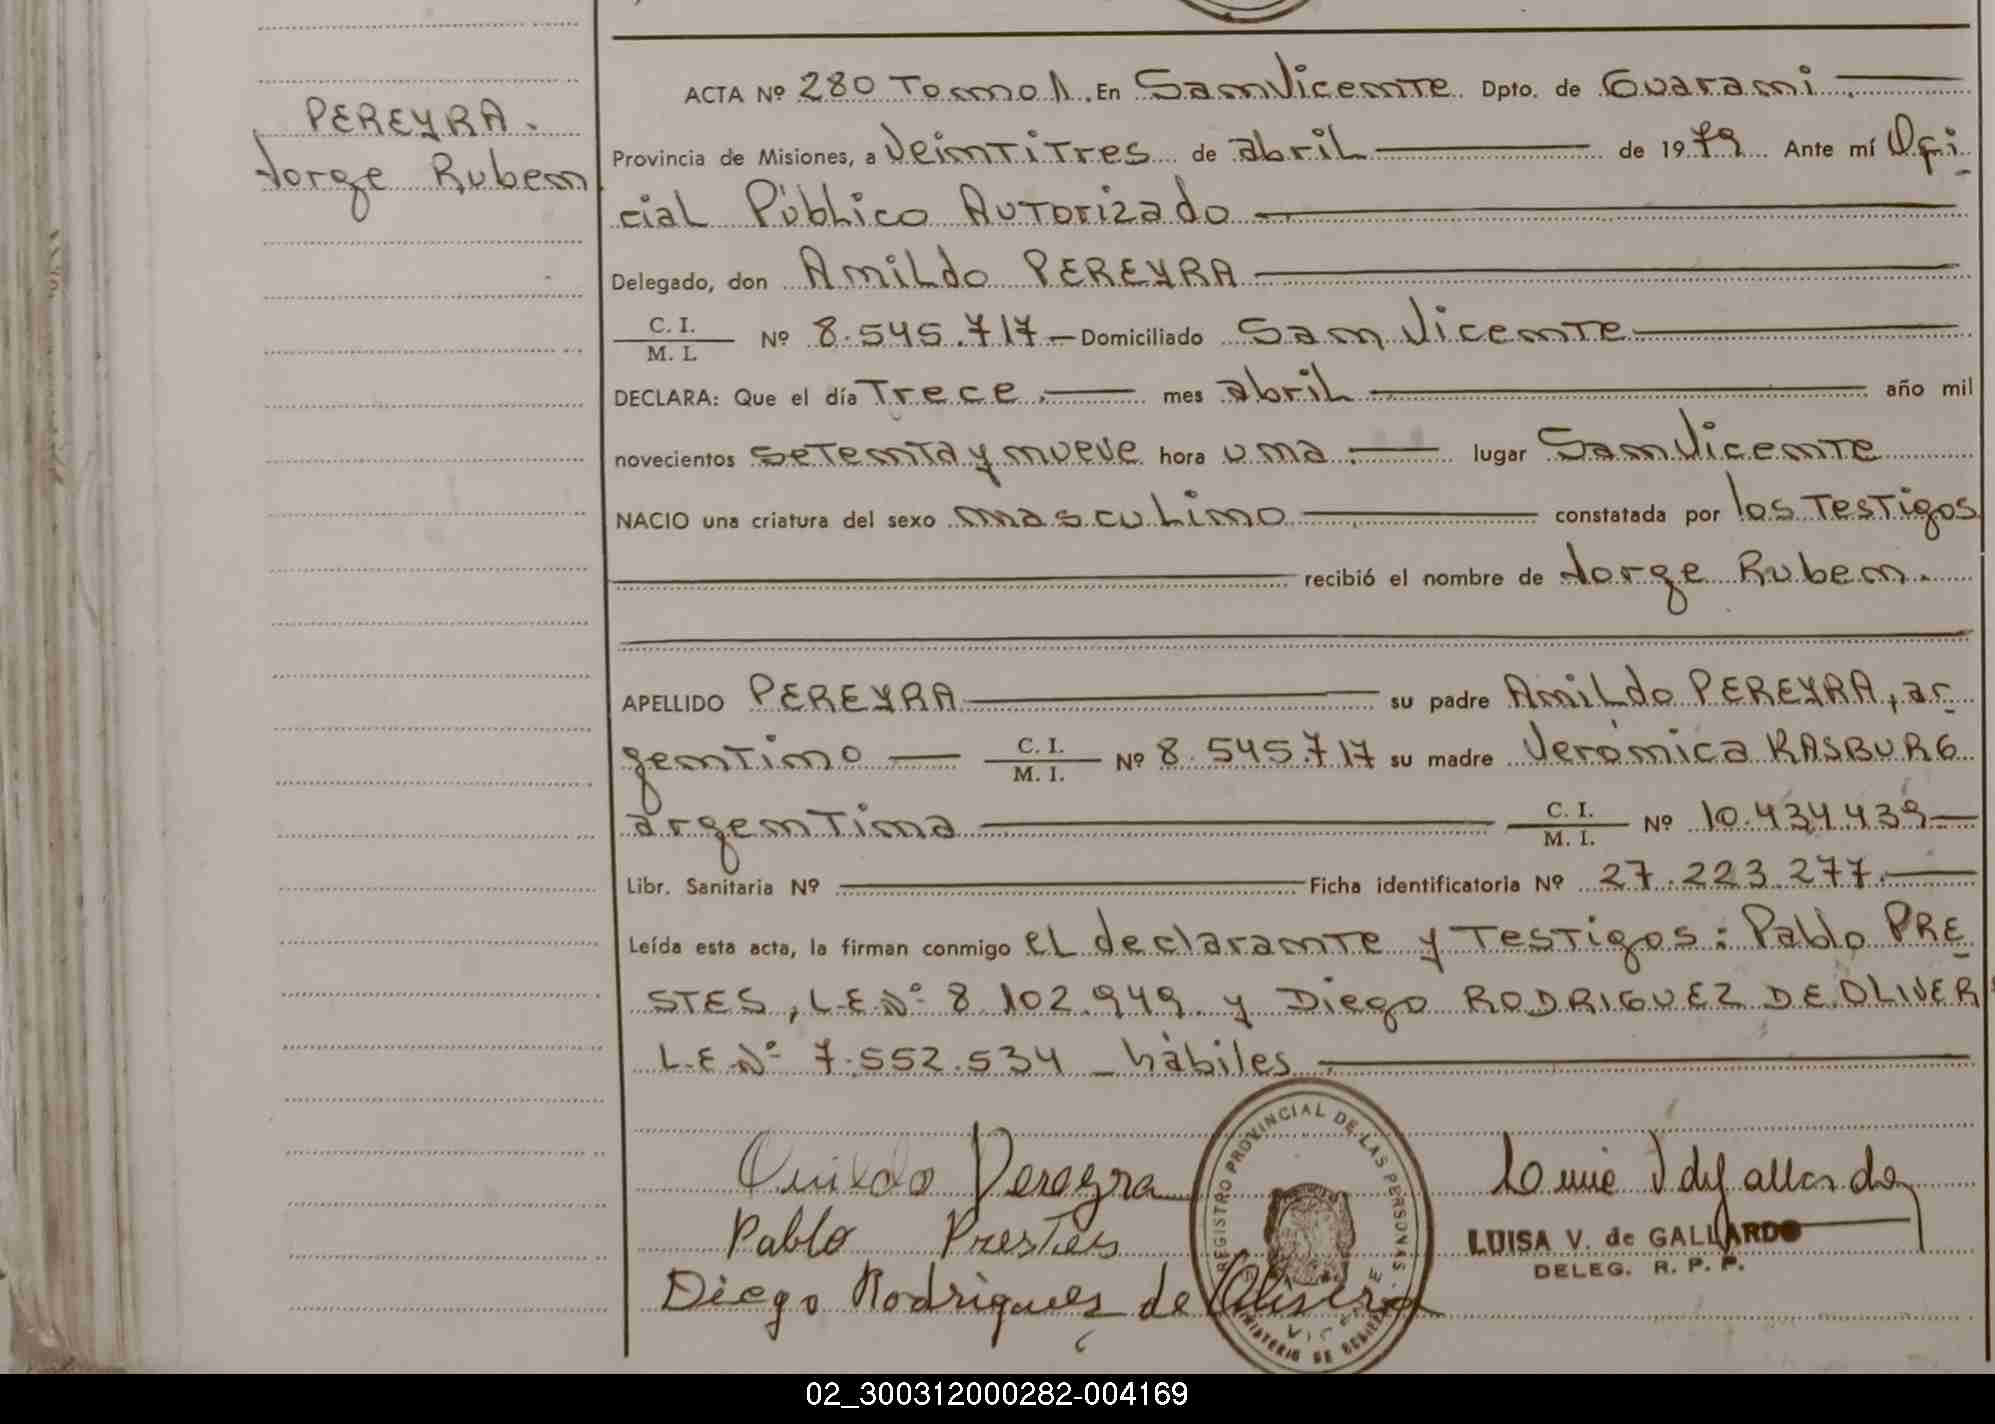 PEREYRA.
Jorge Ruben
ACTA Nº 280 Tomo 1. En San Vicente Dpto. de Guaraní
Provincia de Misiones, a Veintitres de abril de 1979 Ante mí Ofi-
cial Público Autorizado
Delegado, don Anildo PEREYRA
C. I.
M. I. Nº 8.545.717 Domiciliado San Vicente
DECLARA: Que el día Trece. mes abril año mil
novecientos setenta y nueve hora una. lugar San Vicente
NACIO una criatura del sexo masculino constatada por los Testigos
recibió el nombre de Jorge Ruben.
APELLIDO PEREYRA su padre Anildo PEREYRA, ar-
gentino C. I.
M. I. Nº 8.545.717 su madre Verónica RASBURG
argentina C. I.
M. I. Nº 10.434.439
Libr. Sanitaria Nº Ficha identificatoria Nº 27.223.277.
Leída esta acta, la firman conmigo el declarante y Testigos: Pablo PRE-
STES, L.E.Nº 8.102.949 y Diego RODRIGUEZ DE OLIVER
L.E.Nº 7.552.534 _ hábiles
Pereyra
Pablo Prestes
Diego Rodrigues de Olivera
REGISTRO PROVINCIAL DE LAS PERSONAS
MINISTERIO DE GOBIERNO
LUISA V. de GALLARDO
DELEG. R. P. P.
02_300312000282-004169